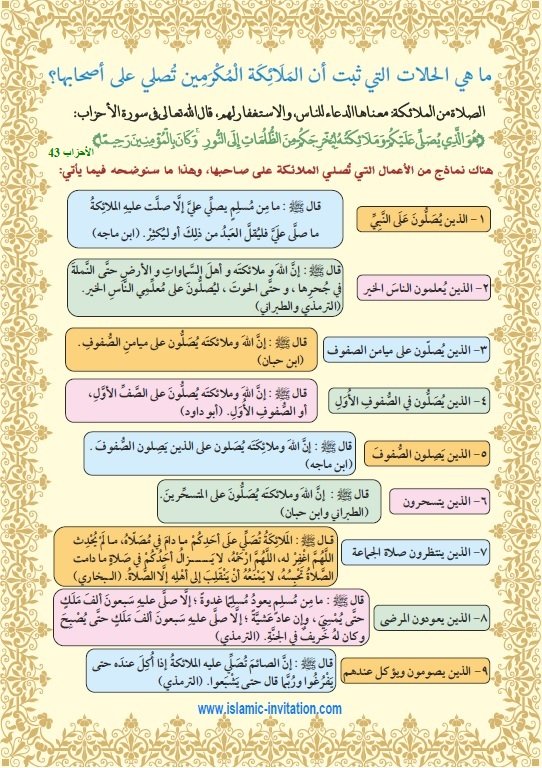 ما هي الحالات التي ثبت أن المَلَائِكَة الْمُكْرَمِين تُصلي على أصحابها؟
الصلاة من الملائكة: معناها الدعاء للناس، والاستغفار لهم، قال الله تعالى في سورة الأحزاب:
﴿هُوَ الَّذِي يُصَلِّي عَلَيْكُمْ وَمَلَائِكَتُهُ لِيُخْرِجَكُم مِّنَ الظُّلُمَاتِ إِلَى النُّورِ ۚ وَكَانَ بِالْمُؤْمِنِينَ رَحِيمًا﴾ الأحزاب 43
هناك نماذج من الأعمال التي تُصلي الملائكة على صاحبها، وهذا ما سنوضحه فيما يأتي:
١- الذين يُصَلُّونَ عَلَى النَّبِيِّ
قال ﷺ : ما مِن مُسلِمٍ يصلِّي عليَّ إلَّا صلَّت عليهِ الملائِكةُ
ما صلَّى عليَّ فليُقلَّ العَبدُ من ذلِكَ أو ليُكثِرْ. (ابن ماجه)
٢- الذين يُعلمون الناسَ الخير
قال ﷺ : إنَّ اللهَ و ملائكتَه و أهلَ السَّماواتِ و الأرضِ حتَّى النَّملةَ
في جُحرِها ، و حتَّى الحوتَ ، ليُصلُّونَ على مُعلِّمِي النَّاسِ الخير.
(الترمذي والطبراني)
٣- الذين يُصلّون على ميامن الصفوف
قال ﷺ : إنَّ اللهَ وملائكتَه يُصَلُّون على ميامنِ الصُّفوفِ.
(ابن حبان)
٤- الذين يُصَلُّون في الصُّفوفِ الأُوَلِ
قال ﷺ : إنَّ اللهَ وملائكتَه يُصلُّونَ على الصَّفِّ الأوَّلِ،
أو الصُّفوفِ الأُوَلِ. (أبو داود)
٥- الذين يَصِلون الصُّفوفَ
قال ﷺ : إنَّ اللهَ وملائِكتَه يُصَلونَ على الذين يَصِلون الصُّفوفَ .
(ابن ماجه)
٦- الذين يتسحرون
قال ﷺ : إنَّ اللهَ وملائكتَه يُصَلُّونَ على المتسحِّرينَ.
(الطبراني وابن حبان)
٧- الذين ينتظرون صلاة الجماعة
قال ﷺ : المَلَائِكَةُ تُصَلِّي علَى أحَدِكُمْ ما دامَ في مُصَلَّاهُ، ما لَمْ يُحْدِثْ
اللَّهُمَّ اغْفِرْ له، اللَّهُمَّ ارْحَمْهُ، لا يَـــزالُ أحَدُكُمْ في صَلاةٍ ما دامت
الصَّلاةُ تَحْبِسُهُ، لا يَمْنَعُهُ أنْ يَنْقَلِبَ إلى أهْلِهِ إلَّا الصَّلاةُ. (البخاري)
٨- الذين يعودون المرضى
قال ﷺ : ما مِن مُسلِمٍ يعودُ مُسلِمًا غدوةً ؛ إلَّا صلَّى عليهِ سَبعونَ ألفَ مَلَكٍ
حتَّى يُمْسِيَ ، وإن عادَ عَشيَّةً ؛ إلَّا صلَّى عليهِ سَبعونَ ألفَ مَلَكٍ حتَّى يُصْبِحَ
وكانَ لهُ خَريفٌ في الجنَّةِ. (الترمذي)
٩- الذين يصومون ويؤكل عندهم
قال ﷺ : إنَّ الصائمَ تُصَلِّي عليه الملائكةُ إذا أُكِلَ عندَه حتى
يَفْرُغُوا ورُبَّما قال حتى يَشْبَعوا. (الترمذي)
www.islamic-invitation.com